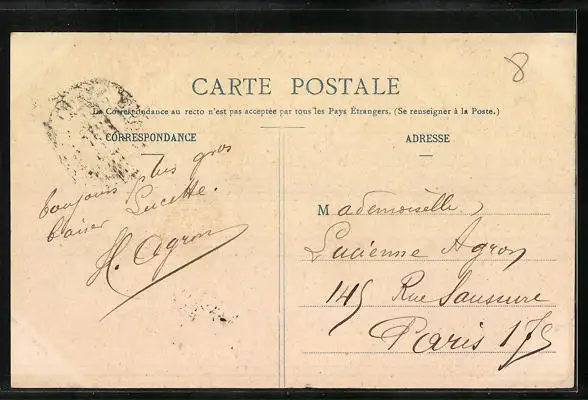 8
CARTE POSTALE
La Correspondance au recto n'est pas acceptée par tous les Pays Étrangers. (Se renseigner à la Poste.)
CORRESPONDANCE
toujours plus gros
baiser Lucette.
H. Agron
ADRESSE
Mademoiselle
Lucienne Agron
145 Rue Saussure
Paris 17e